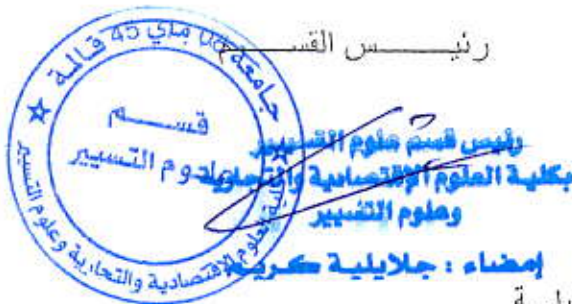 رئيس القسم
جامعة 08 ماي 45 قالمة
كلية العلوم الاقتصادية والتجارية وعلوم التسيير
قسم
علوم التسيير
رئيس قسم علوم التسيير
بكلية العلوم الإقتصادية والتجارية
وعلوم التسيير
إمضاء : جلايلية كريمة